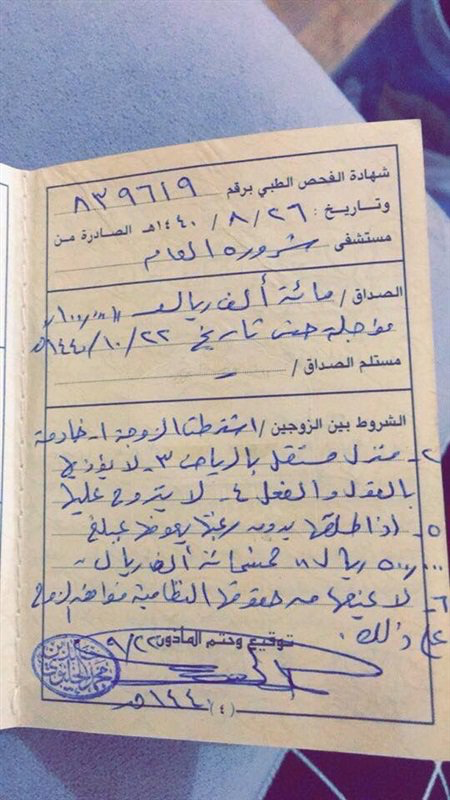 شهادة الفحص الطبي برقم ٨٣٩٦١٩
وتـاريـخ : ٢٦ / ٨ / ١٤٤٠هـ الصادرة من
مستشفى شروره العام
الصداق / مائة ألف ريال ١٠٠٠٠٠
مؤجلة حتى تاريخ ٢٢/ ١٠/ ١٤٤٠هـ
مستلم الصداق /
الشروط بين الزوجين / اشترطت الزوجة ١- خادمة
٢- منزل مستقل بالرياض ٣- لا يؤذيها
بالقول والفعل ٤- لا يتزوج عليها
٥- اذا طلقها بدون رغبتها يعوضها بمبلغ
٥٠٠,٠٠٠ ريال خمسمائة ألف ريال
٦- لا يمنعها من حقوقها النظامية فوافق الزوج
على ذلك.
توقيع وختم المأذون ٩/٢٢
١٤٤٠هـ
(٤)